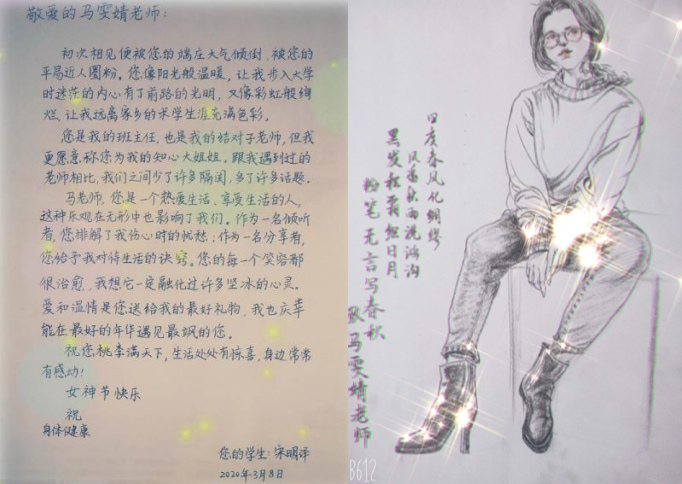 敬爱的马雯婧老师：
初次相见便被您的端庄大气倾倒，被您的
平易近人圈粉。您像阳光般温暖，让我步入大学
时迷茫的内心有了前路的光明，又像彩虹般绚
烂，让我远离家乡的求学生涯充满色彩。
您是我的班主任，也是我的结对子老师，但我
更愿意称您为我的知心大姐姐。跟我遇到过的
老师相比，我们之间少了许多隔阂，多了许多话题。
马老师，您是一个热爱生活、享受生活的人，
这种乐观在无形中也影响了我们。作为一名倾听
者，您排解了我伤心时的忧愁；作为一名分享者，
您给予我对待生活的诀窍。您的每一个笑容都
很治愈，我想它一定融化过许多坚冰的心灵。
爱和温情是您送给我的最好礼物，我也庆幸
能在最好的年华遇见最飒的您。
祝您桃李满天下，生活处处有惊喜，身边常常
有感动！
女神节快乐
祝
身体健康
您的学生：宋明泽
2020年3月8日
四度春风化绸缪
几番秋雨洗鸿沟
黑发积霜织日月
粉笔无言写春秋
致马雯婧老师
B612